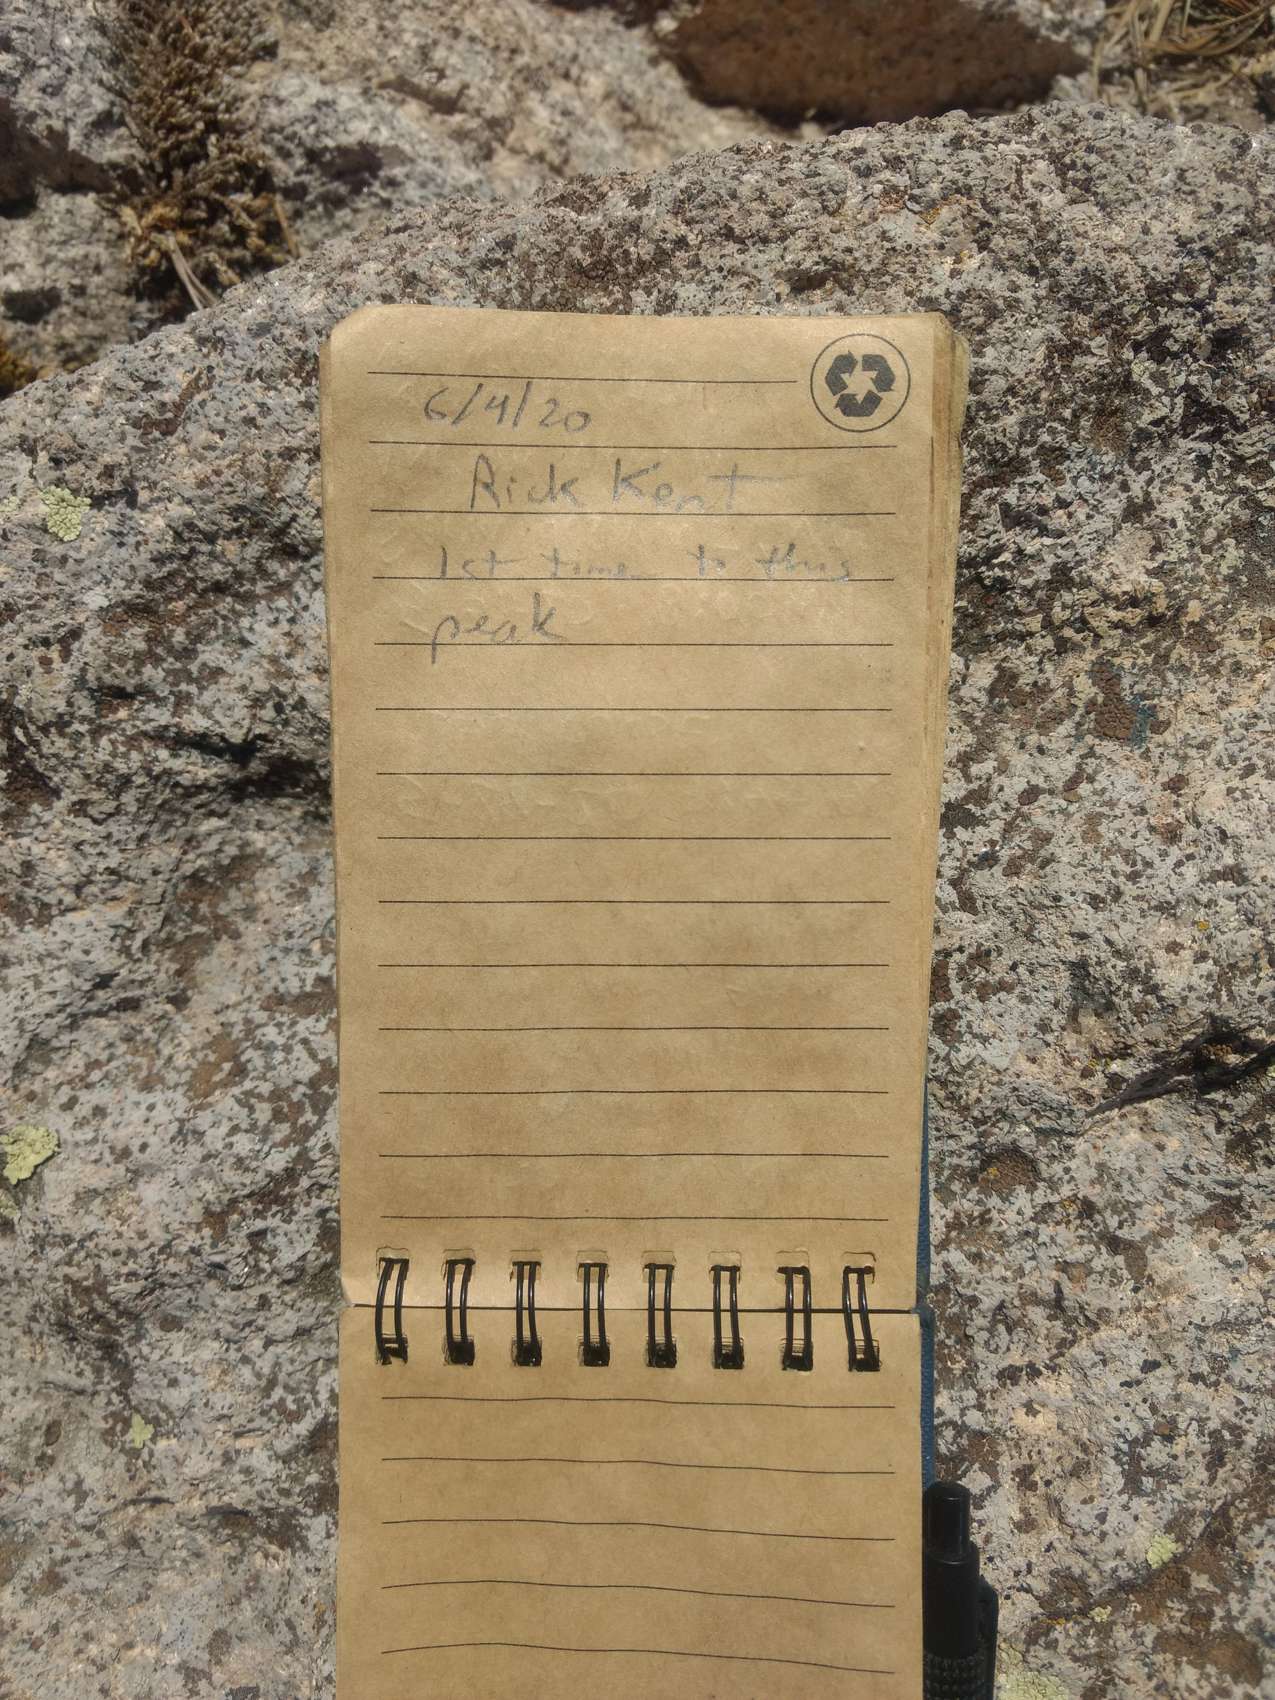 6/4/20
Rick Kent
1st time to this
peak